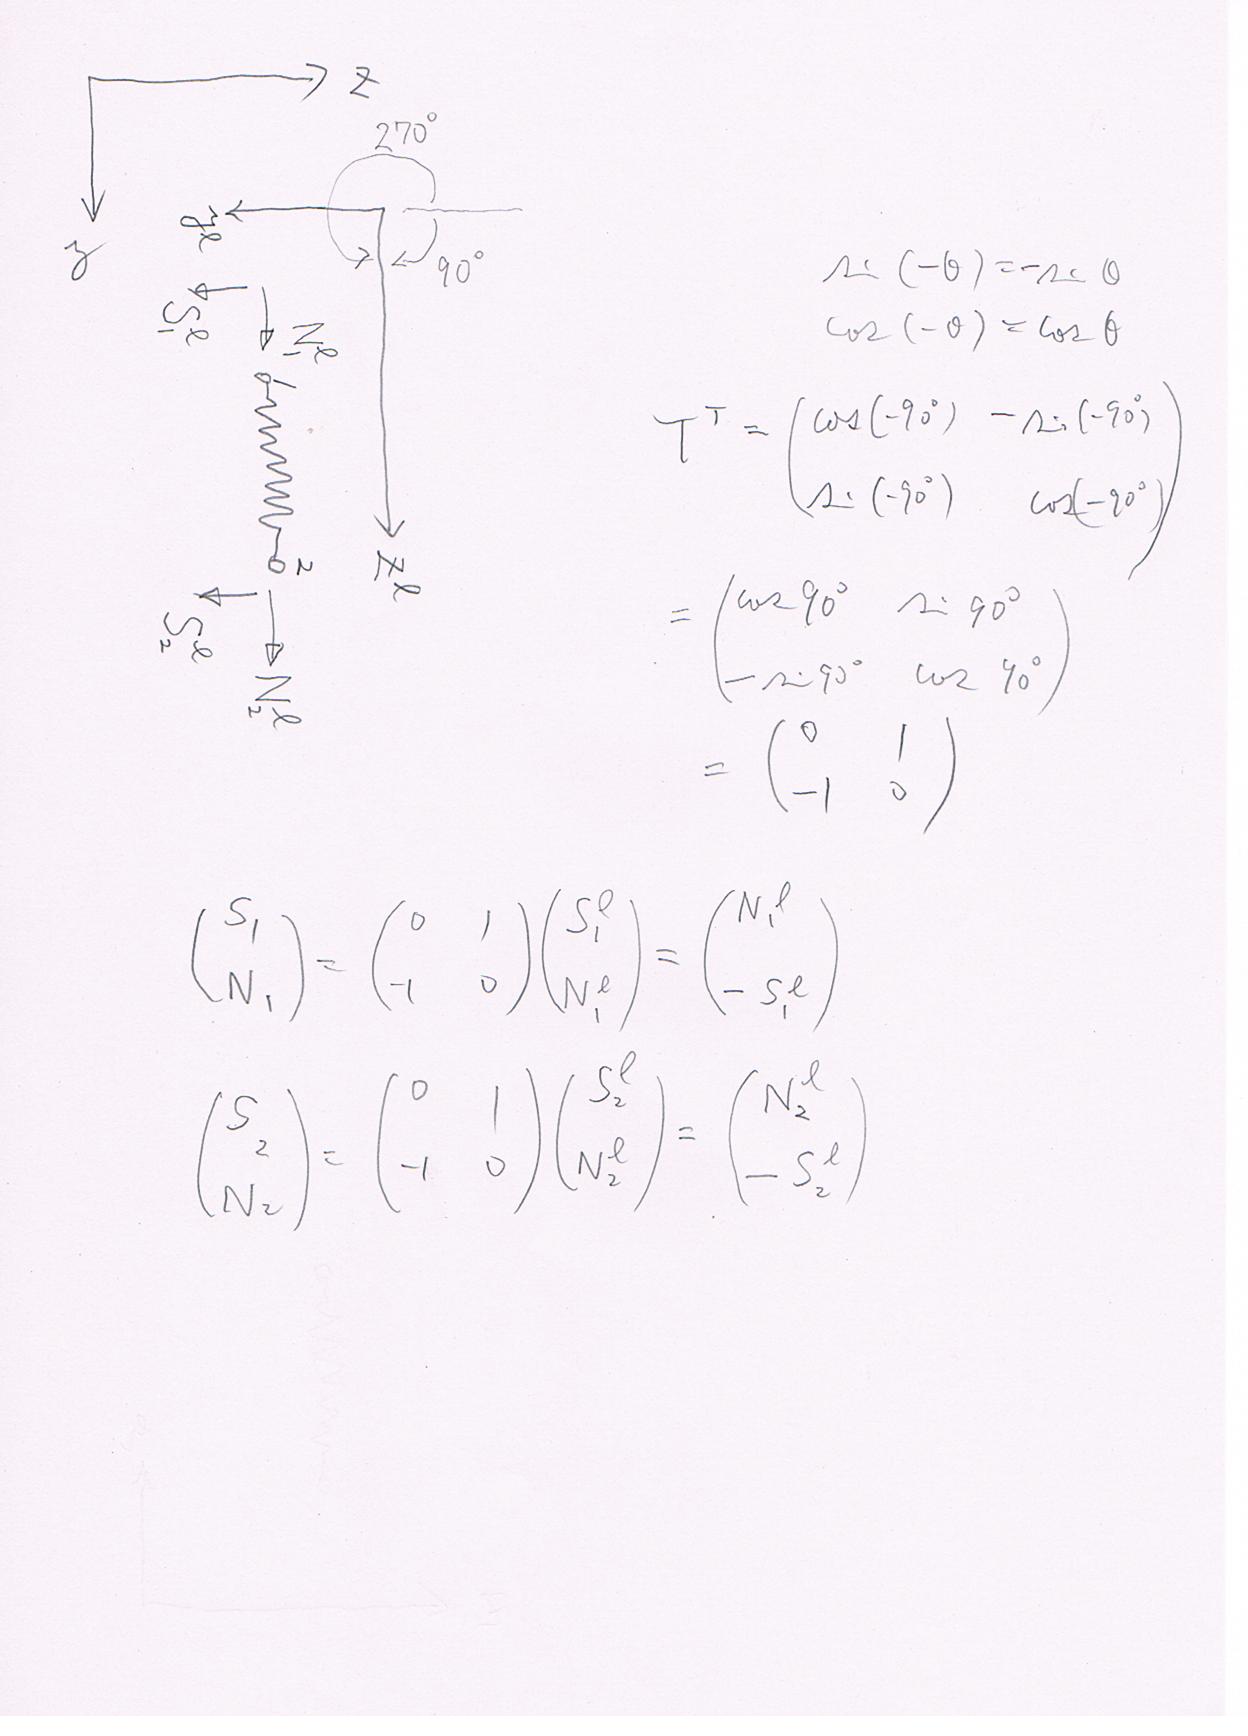 z
y
270°
90°
y^ℓ
z^ℓ
S_1^ℓ
N_1^ℓ
2
S_2^ℓ
N_2^ℓ
sin (-θ) = -sin θ
cos (-θ) = cos θ
T^T = ( cos(-90°) -sin(-90°)
sin(-90°) cos(-90°) )
= ( cos 90° sin 90°
-sin 90° cos 90° )
= ( 0 1
-1 0 )
( S_1
N_1 ) = ( 0 1
-1 0 ) ( S_1^ℓ
N_1^ℓ ) = ( N_1^ℓ
- S_1^ℓ )
( S_2
N_2 ) = ( 0 1
-1 0 ) ( S_2^ℓ
N_2^ℓ ) = ( N_2^ℓ
- S_2^ℓ )